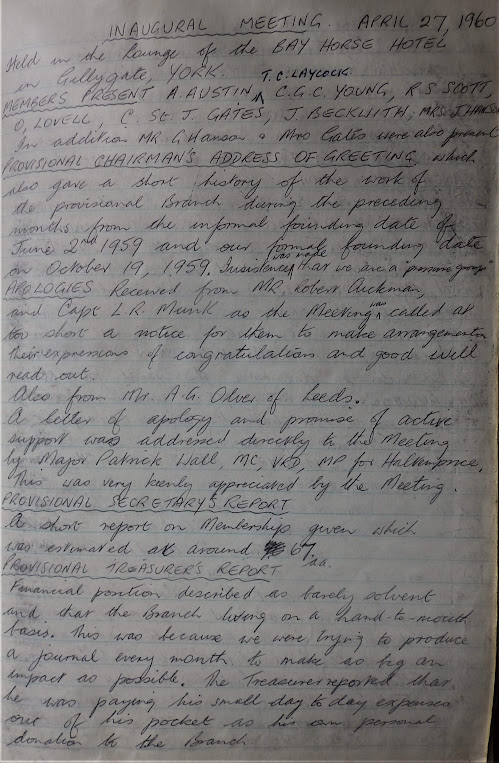 INAUGURAL MEETING. APRIL 27, 1960
Held in the Lounge of the BAY HORSE HOTEL
in Gillygate, YORK.
MEMBERS PRESENT A. AUSTIN, T.C. LAYCOCK C.G.C. YOUNG, R.S. SCOTT,
O. LOVELL, C. St. J. GATES, J BECKWITH, MRS J HANSON
In addition MR G Hanson & Mrs Gates were also present
PROVISIONAL CHAIRMAN'S ADDRESS OF GREETING which
also gave a short history of the work of
the provisional Branch during the preceding
months from the informal founding date of
June 2nd 1959 and our formal founding date
on October 19, 1959. Insistence was made that we are a pressure group
APOLOGIES Received from MR. Robert Aickman,
and Capt L.R. Munk as the Meeting was called at
too short a notice for them to make arrangements
Their expressions of congratulations and good will
read out.
Also from Mr. A.G. Oliver of Leeds.
A letter of apology and promise of active
support was addressed directly to the Meeting
by Major Patrick Wall, MC, VRD, MP for Haltemprice.
This was very keenly appreciated by the Meeting.
PROVISIONAL SECRETARY'S REPORT
A short report on Membership given which
was estimated at around 67.
PROVISIONAL TREASURER'S REPORT
Financial position described as barely solvent
and that the Branch living on a hand-to-mouth
basis. This was because we were trying to produce
a journal every month to make as big an
impact as possible. The Treasurer reported that
he was paying his small day to day expenses
out of his pocket as his own personal
donation to the Branch